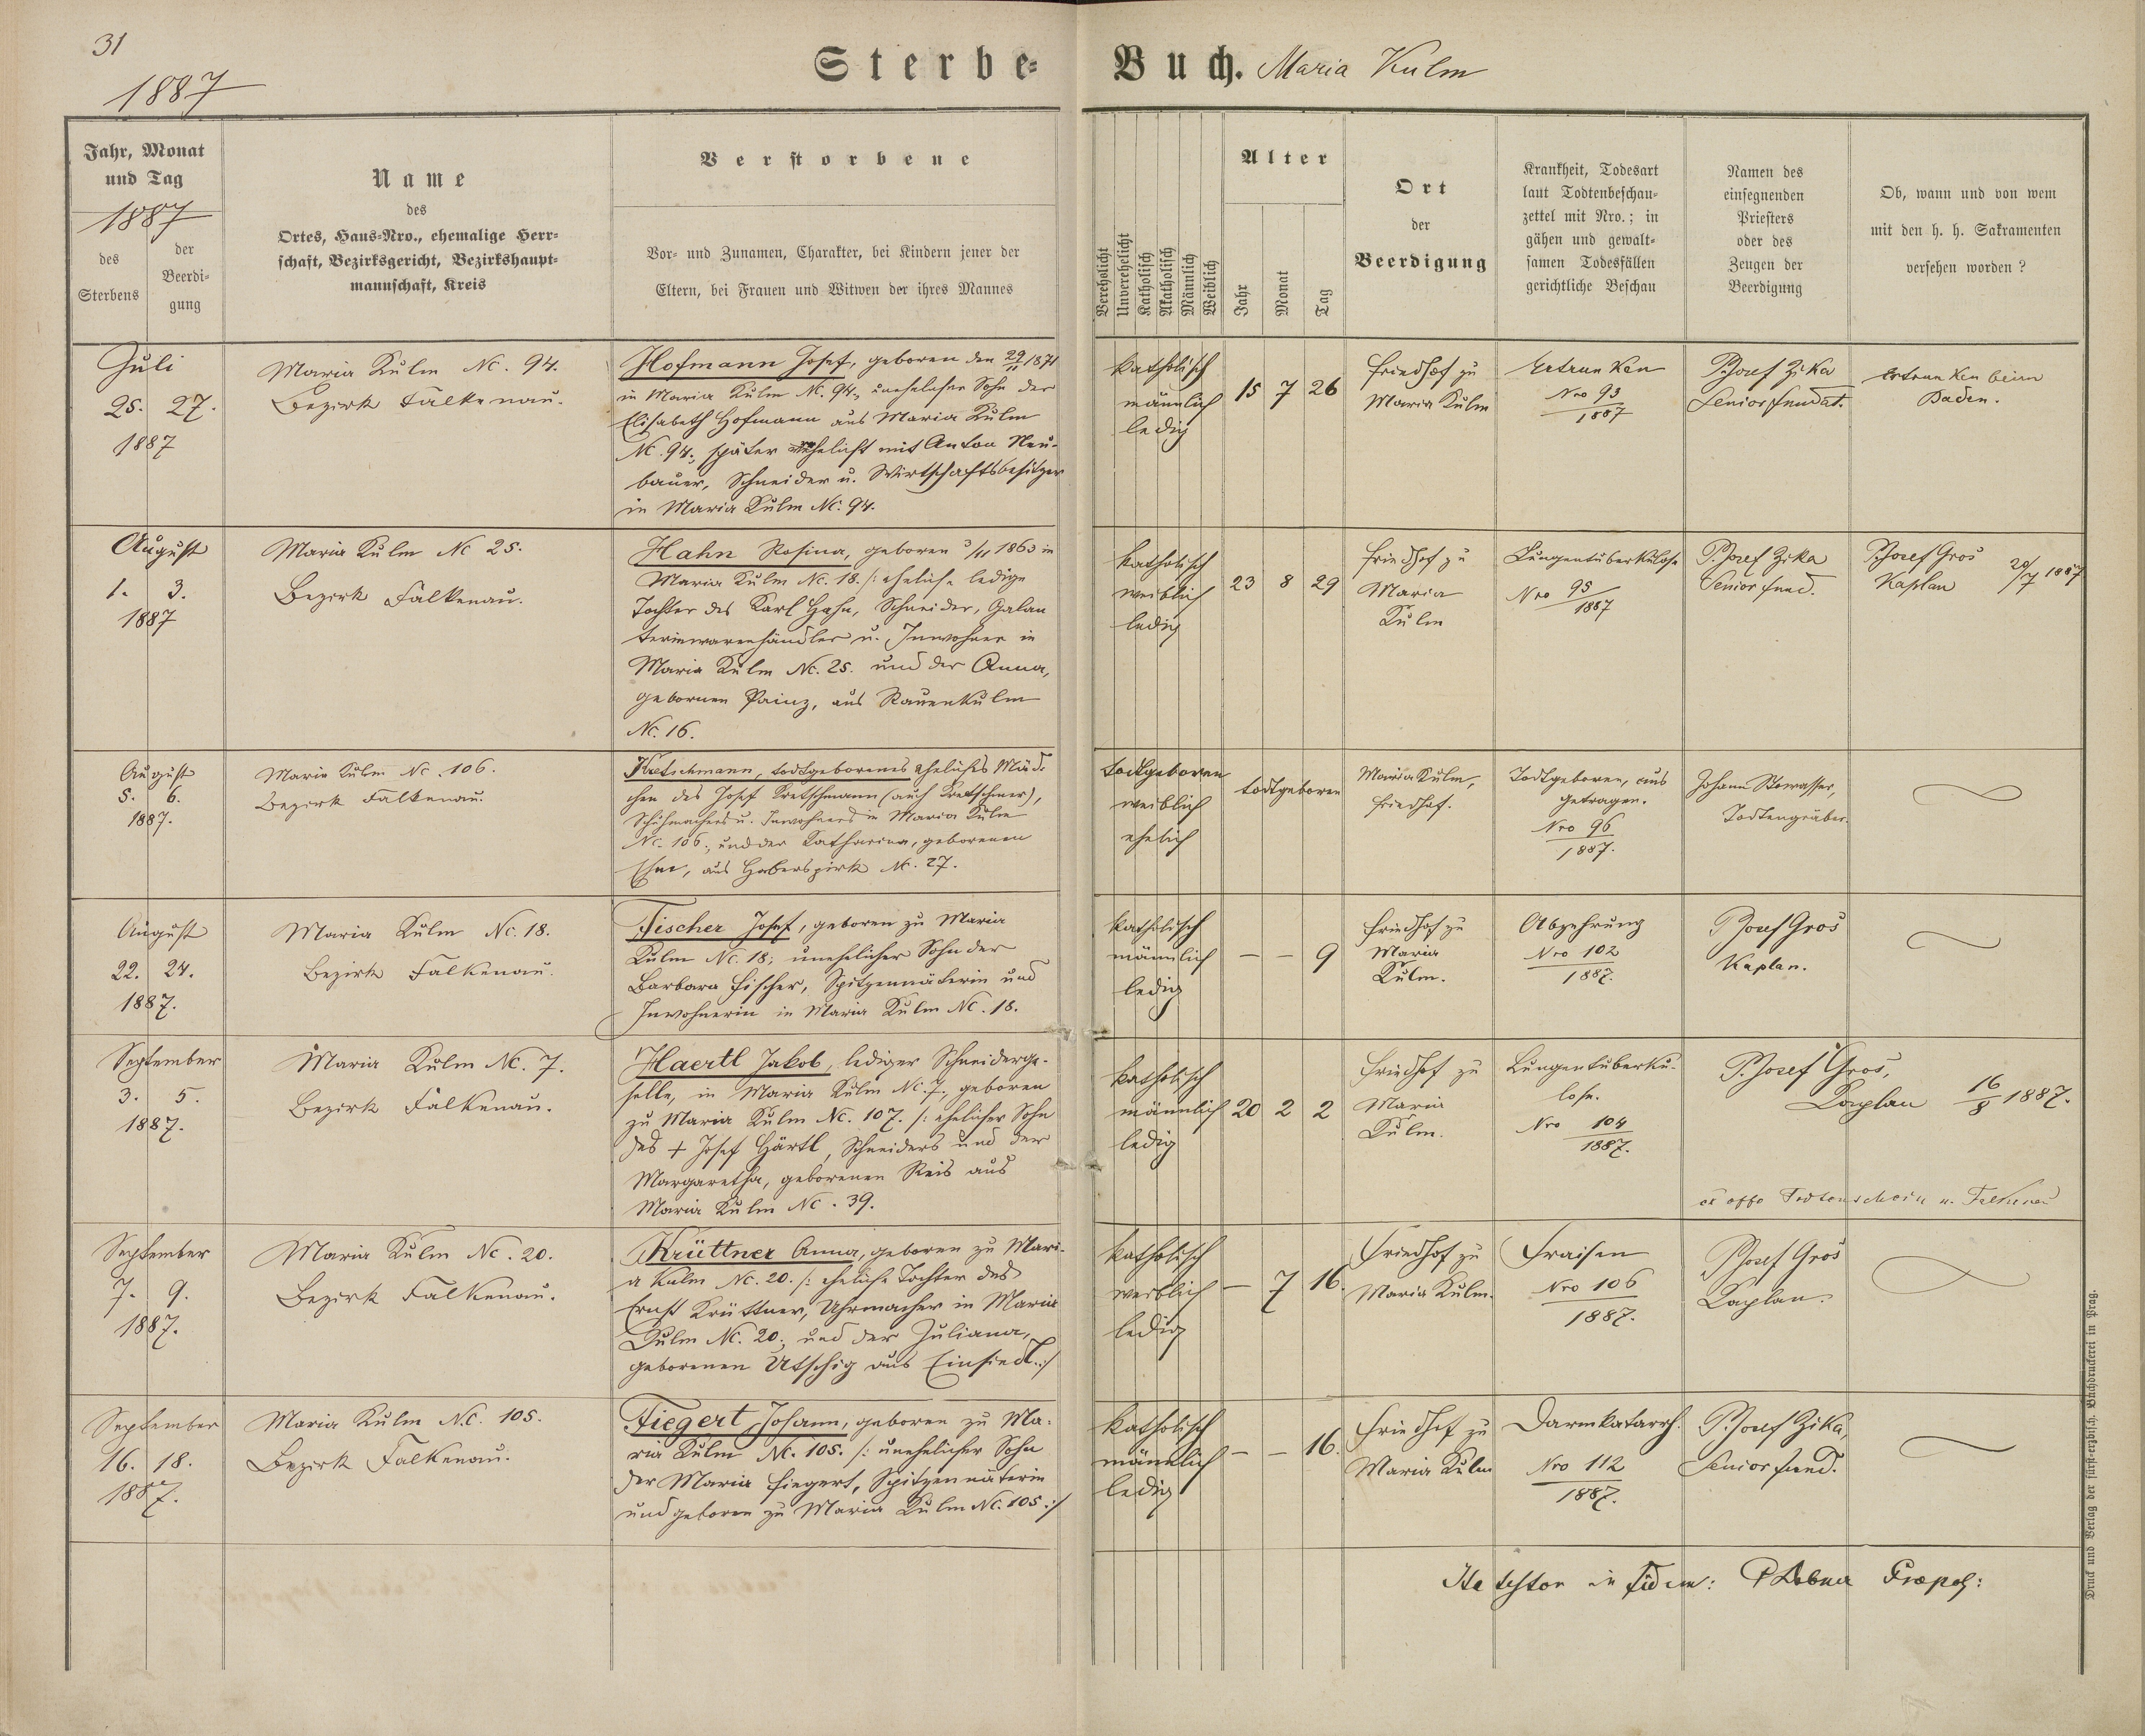 31
1887
Sterbe-Buch. Maria Kulm
Jahr, Monat
und Tag
1887
des
Sterbens
der
Beerdi-
gung
Name
des
Ortes, Haus-Nro., ehemalige Herr-
schaft, Bezirksgericht, Bezirkshaupt-
mannschaft, Kreis
Verstorbene
Vor- und Zunamen, Charakter, bei Kindern jener der
Eltern, bei Frauen und Witwen der ihres Mannes
Verehelicht
Unverehelicht
Katholisch
Akatholisch
Männlich
Weiblich
Alter
Jahr
Monat
Tag
Ort
der
Beerdigung
Krankheit, Todesart
laut Todtenbeschau-
zettel mit Nro.; in
gähen und gewalt-
samen Todesfällen
gerichtliche Beschau
Namen des
einsegnenden
Priesters
oder des
Zeugen der
Beerdigung
Ob, wann und von wem
mit den h. h. Sakramenten
versehen worden ?
Juli
25. 27.
1887
Maria Kulm Nc. 94.
Bezirk Falkenau.
Hofmann Josef, geboren den 29/11 1871
in Maria Kulm Nc. 94., unehelicher Sohn der
Elisabeth Hofmann aus Maria Kulm
Nc. 94., später ehelicht mit Anton Neu-
bauer, Schneider u. Wirtschaftsbesitzer
in Maria Kulm Nc. 94.
katholisch
männlich
ledig
15 7 26
Friedhof zu
Maria Kulm
Ertrunken
Nro 93
1887
P. Josef Zika
Senior fundat.
Ertrunken beim
Baden.
August
1. 3.
1887
Maria Kulm Nc 25.
Bezirk Falkenau.
Hahn Rosina, geboren 3/11 1863 in
Maria Kulm Nc. 18. /: eheliche ledige
Tochter des Karl Hahn, Schneider, Galan
teriewarenhändler u. Inwohner in
Maria Kulm Nc. 25. und der Anna,
gebornen Painz, aus Rauenkulm
Nc. 16.
katholisch
weiblich
ledig
23 8 29
Friedhof zu
Maria
Kulm
Lungentuberkulose
Nro 95
1887
P. Josef Zika
Senior fund.
P. Josef Gros
Kaplan 20/7 1887
August
5. 6.
1887.
Maria Kulm Nc. 106.
Bezirk Falkenau.
Kretschmann, todtgeborenes eheliches Mäd-
chen des Josef Kretschmann (auch Kretschmer),
Schuhmachers u. Inwohners in Maria Kulm
Nc. 106., und der Katharina, geborenen
aus Haberspirk Nc. 27.
todtgeboren
weiblich
ehelich
todtgeboren
Maria Kulm,
Friedhof.
Todtgeboren, aus
getragen.
Nro 96
1887.
Johann Stowasser,
Todtengräber.
August
22. 24.
1887.
Maria Kulm Nc. 18.
Bezirk Falkenau.
Fischer Josef, geboren zu Maria
Kulm Nc. 18; unehelicher Sohn der
Barbara Fischer, Spitzennäterin und
Inwohnerin in Maria Kulm Nc. 18.
katholisch
männlich
ledig
– – 9
Friedhof zu
Maria
Kulm.
Abzehrung
Nro 102
1887.
P. Josef Gros
Kaplan.
September
3. 5.
1887.
Maria Kulm Nc. 7.
Bezirk Falkenau.
Haertl Jakob, lediger Schneiderge-
selle, in Maria Kulm Nc. 7., geboren
zu Maria Kulm Nc. 107. /: ehelicher Sohn
des + Josef Härtl, Schneiders und der
Margaretha, geborenen Reis aus
Maria Kulm Nc. 39.
katholisch
männlich
ledig
20 2 2
Friedhof zu
Maria
Kulm.
Lungentuberku-
lose.
Nro 104
1887.
P. Josef Gros,
Kaplan 16/8 1887.
ex offo Todtenschein n. Falkenau
September
7. 9.
1887.
Maria Kulm Nc. 20.
Bezirk Falkenau.
Krüttner Anna, geboren zu Mari-
a Kulm Nc. 20. /: eheliche Tochter des
Ernst Krüttner, Uhrmacher in Maria
Kulm Nc. 20., und der Juliana,
geborenen Utschig aus Einsiedl :/
katholisch
weiblich
ledig
– 7 16.
Friedhof zu
Maria Kulm.
Fraisen
Nro 106
1887.
P. Josef Gros
Kaplan.
September
16. 18.
1887.
Maria Kulm Nc. 105.
Bezirk Falkenau.
Fiegert Johann, geboren zu Ma-
ria Kulm Nc. 105. /: unehelicher Sohn
der Maria Fiegert, Spitzennäterin
und geboren zu Maria Kulm Nc. 105 :/
katholisch
männlich
ledig
– – 16.
Friedhof zu
Maria Kulm
Darmkatarrh.
Nro 112
1887.
P. Josef Zika,
Senior fund.
Ita testor in fidem:
Druck und Verlag der fürst-erzbisch. Buchdruckerei in Prag.